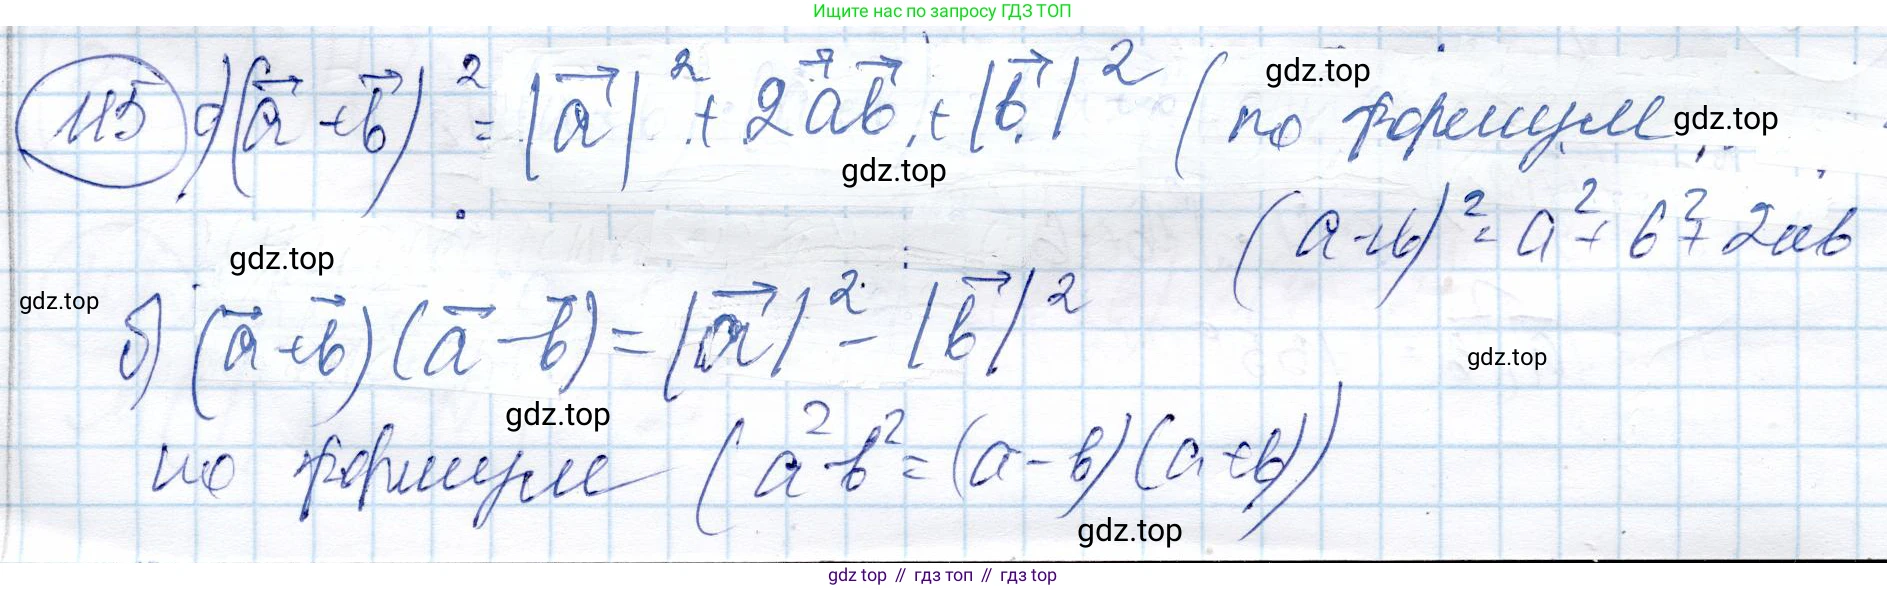 Ищите нас по запросу ГДЗ ТОП
115 а) (a⃗ + b⃗)² = |a⃗|² + 2a⃗b⃗ + |b⃗|² (по формуле
gdz.top
gdz.top
gdz.top
(a+b)² = a² + b² + 2ab
gdz.top
gdz.top
б) (a⃗ + b⃗)(a⃗ - b⃗) = |a⃗|² - |b⃗|²
gdz.top
gdz.top
по формуле (a² - b² = (a - b)(a + b))
gdz.top
gdz top // гдз топ // гдз top